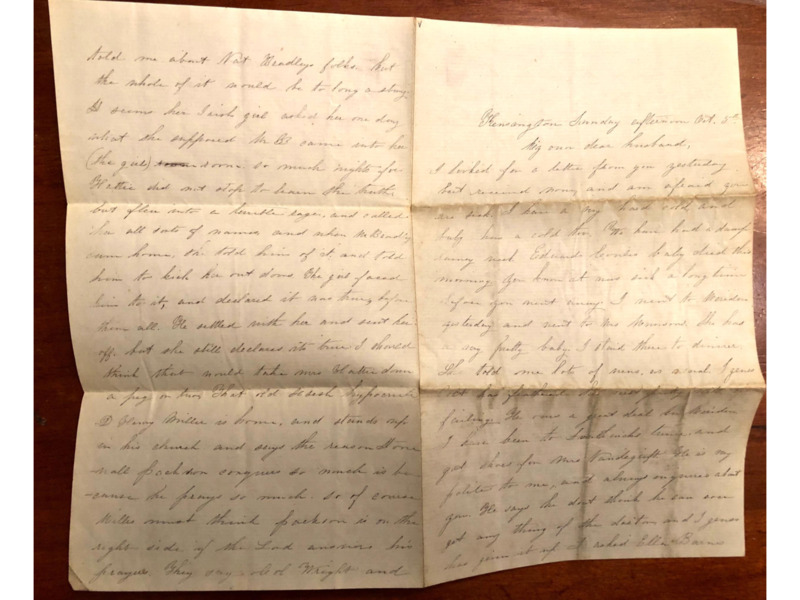 told me about Nat Bradleys folks but
the whole of it would be to long a story
It seems her Irish girl asked her one day
what she supposed Mr B. came into her
(the girl) room so much nights for
Hattie did not stop to learn the truth,
but flew into a terrible rage, and called
her all sorts of names and when Mr Bradley
came home, she told him of it, and told
him to kick her out doors The girl faced
him to it, and declared it was true, before
them all. He settled with her and sent her
off, but she still declares its true I should
think that would take Mrs Hattie down
a peg or two, That old hypocrite
D Miller is home, and stands up
in his church and says the reason Stone
-wall Jackson conquers so much is be
-cause he prays so much. so of course
Miller must think Jackson is on the
right side, if the Lord answers his
prayers. They say Wright and
Kensington Sunday afternoon Oct. 5th
My own dear husband,
I looked for a letter from you yesterday
but received none, and am afraid you
are sick. I have a very hard cold, and
baby has a cold too. We have had a damp
rainy week Edward baby died this
morning You know it was sick a long time
before you went away. I went to Meriden
yesterday and went to Mrs She has
a very pretty baby I staid there to dinner
She told me lots of news, as usual I guess
has
failing. He owes a great deal in Meriden
I have been to twice, and
got shoes for Mrs Vandegrift He is very
polite to me, and always enquires about
you. He says he dont think he can ever
get any thing of the and I guess
has given it up I asked Ella Barnes